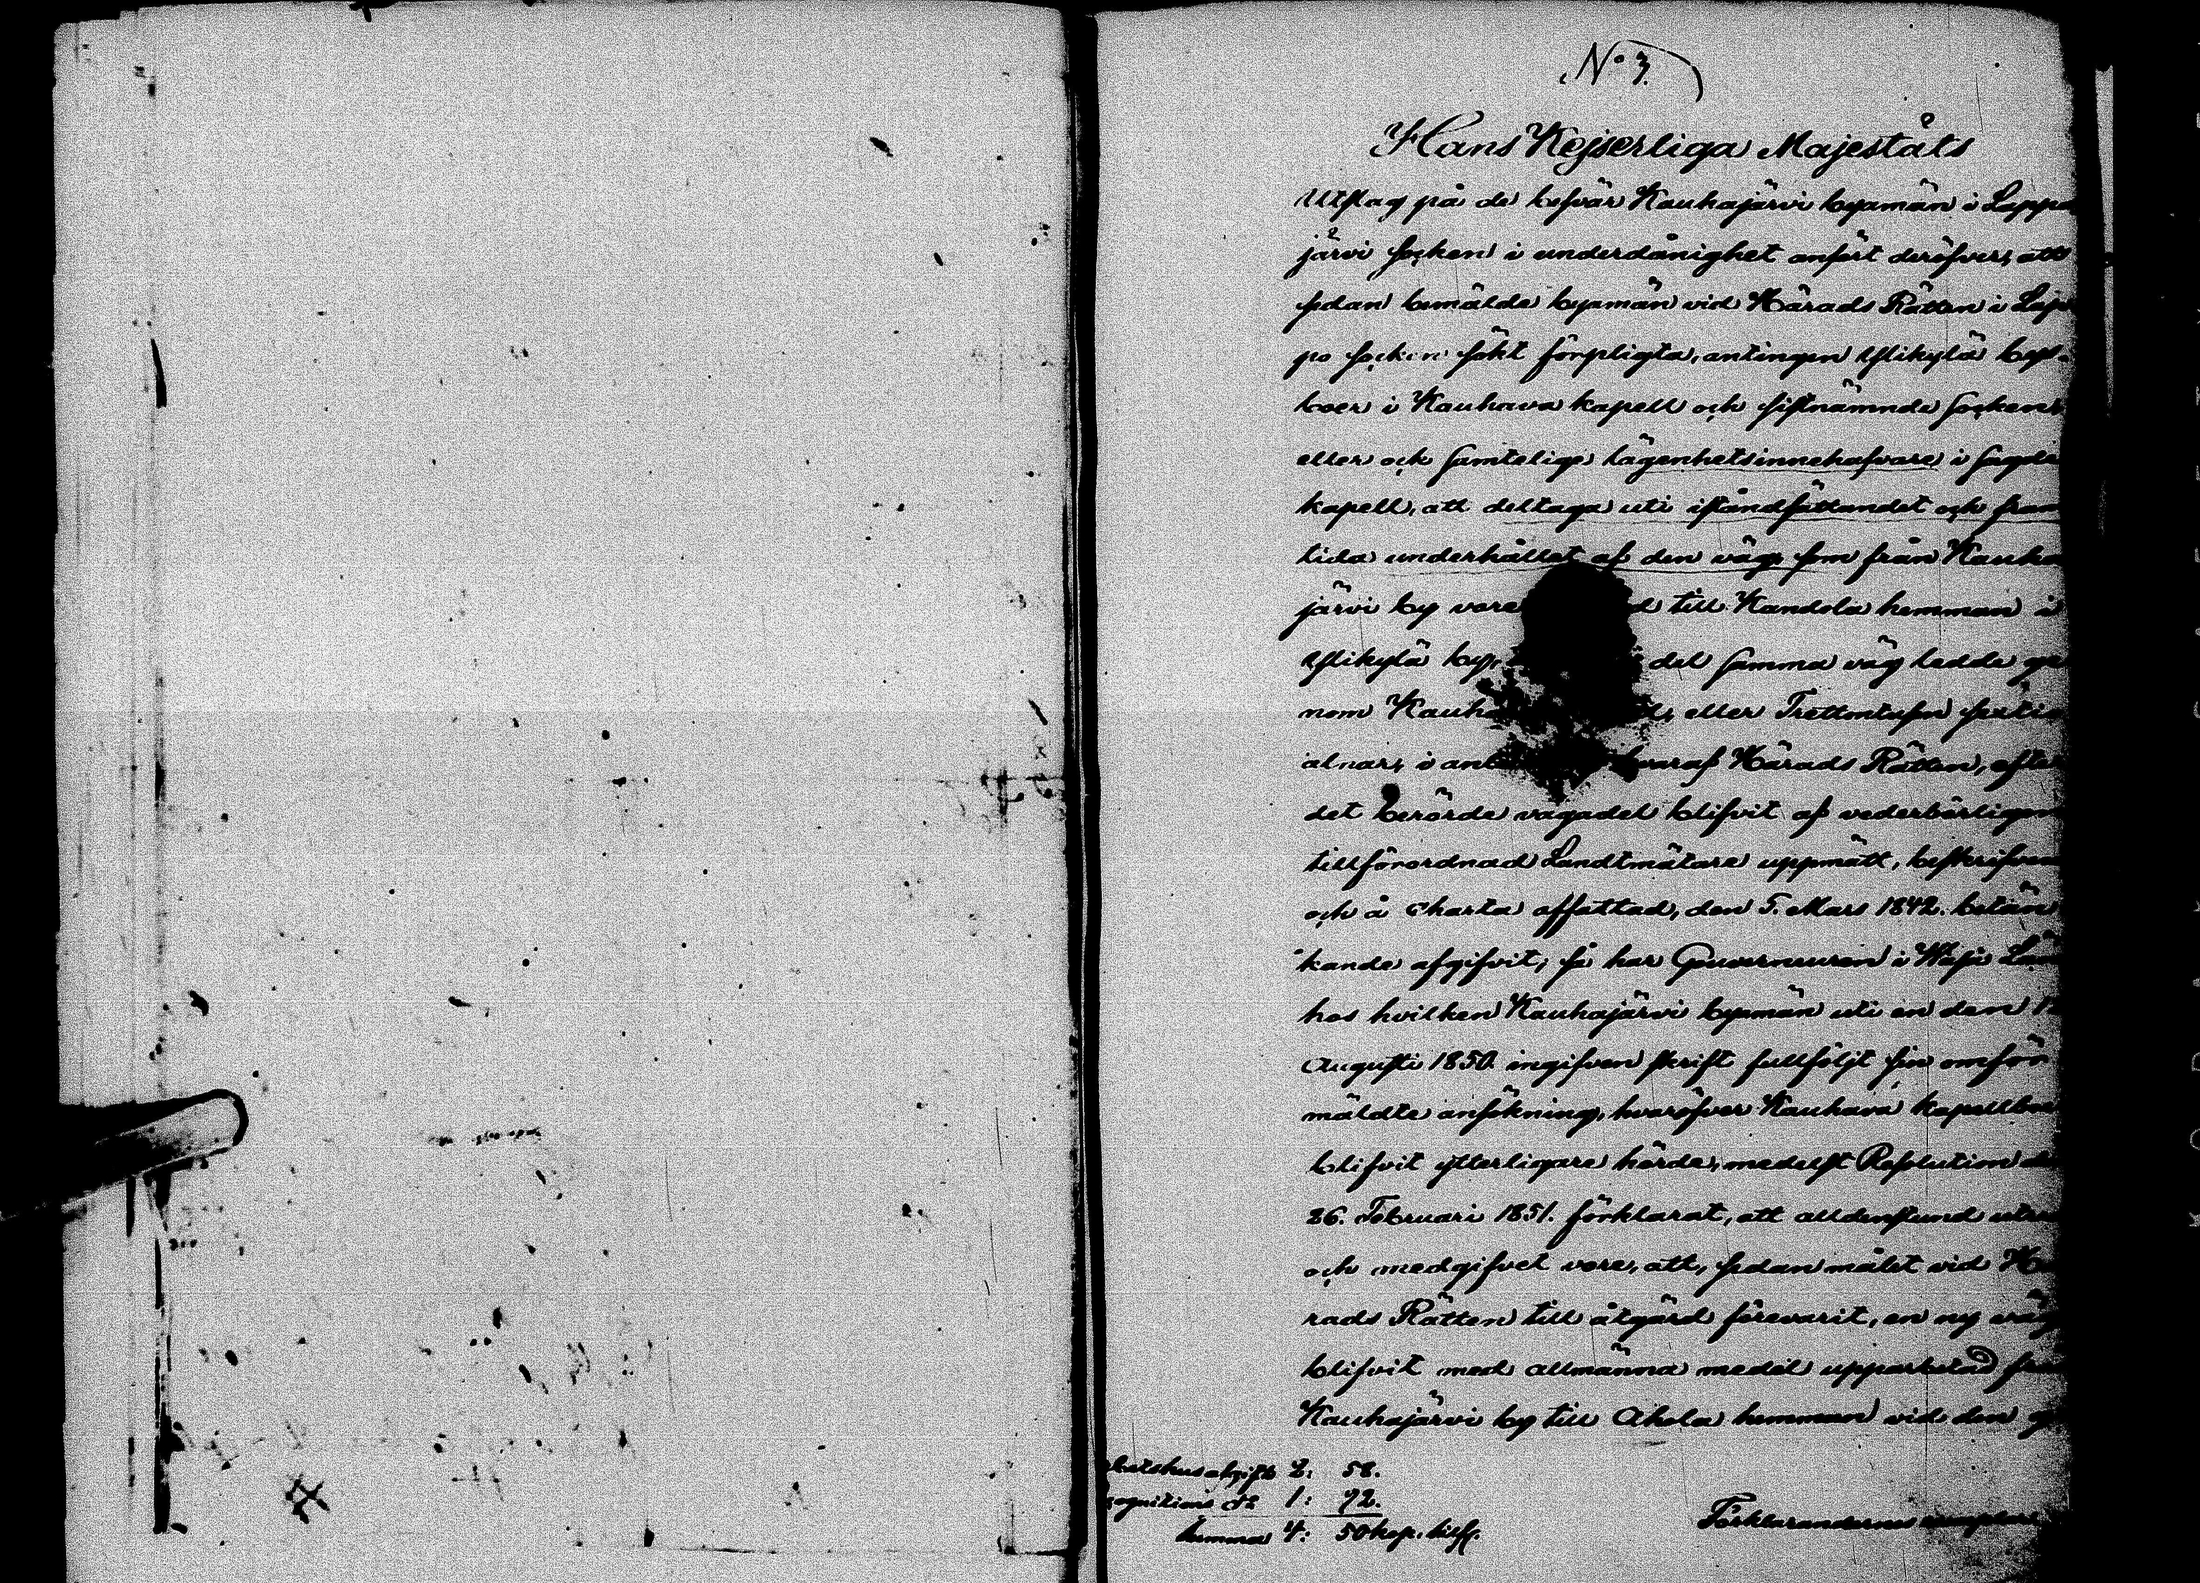 No 3.
Hans Kejserliga Majestäts
Utslag på de besvär Kauhajärvi byamän i Lappo
järvi socken i underdånighet anfört deröfver, att
sedan bemälde byamän vid Härads Rätten i Lap
po socken sökt förpligta, antingen Ylikylä bys
boer i Kauhava kapell och sistnämnde socken,
eller ock samtelige lägenhetsinnehafvare i sagde
kapell, att deltaga uti iståndsättandet och fram
tida underhållet af den väg som från Kauha
järvi by vore d till Kandola hemman i
Ylikylä by, del samma väg ledde ge
nom Kauha eller Trettontusen
alnar, i anl hvaraf Härads Rätten, efter
det berörde vägadel blifvit af vederbörligen
tillförordnad Landtmätare uppmätt, beskrifven
och å charta affattad, den 5. Mars 1842. betän
kande afgifvit; så har Gouverneuren i Wasa Län
hos hvilken Kauhajärvi byamän uti en den 1
Augusti 1850. ingifven skrift fullföljt sin omför
mäldte ansökning, hvaröfver Kauhava kapellboer
blifvit ytterligare hörde, medelst Resolution de
26. Februari 1851. förklarat, att alldenstund utre
och medgifvet vore, att, sedan målet vid Hä
rads Rätten till åtgärd förevarit, en ny väg
blifvit med allmänna medel upparbetad från
Kauhajärvi by till Ahola hemman vid den g
betshusafgift 2: 58.
cognitions do 1: 92.
Summa 4: 50 kop. silf.
Förklarandernes exemplar